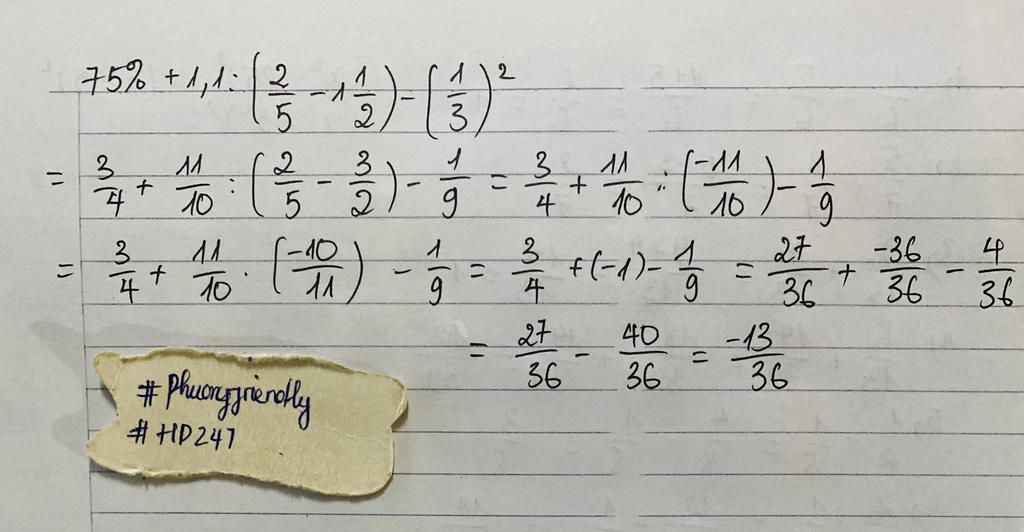 75% + 1,1 : (2/5 − 1 1/2) − (1/3)²
= 3/4 + 11/10 : (2/5 − 3/2) − 1/9 = 3/4 + 11/10 : (−11/10) − 1/9
= 3/4 + 11/10 . (−10/11) − 1/9 = 3/4 + (−1) − 1/9 = 27/36 + −36/36 − 4/36
= 27/36 − 40/36 = −13/36
# Phuongfriendly
# HD247